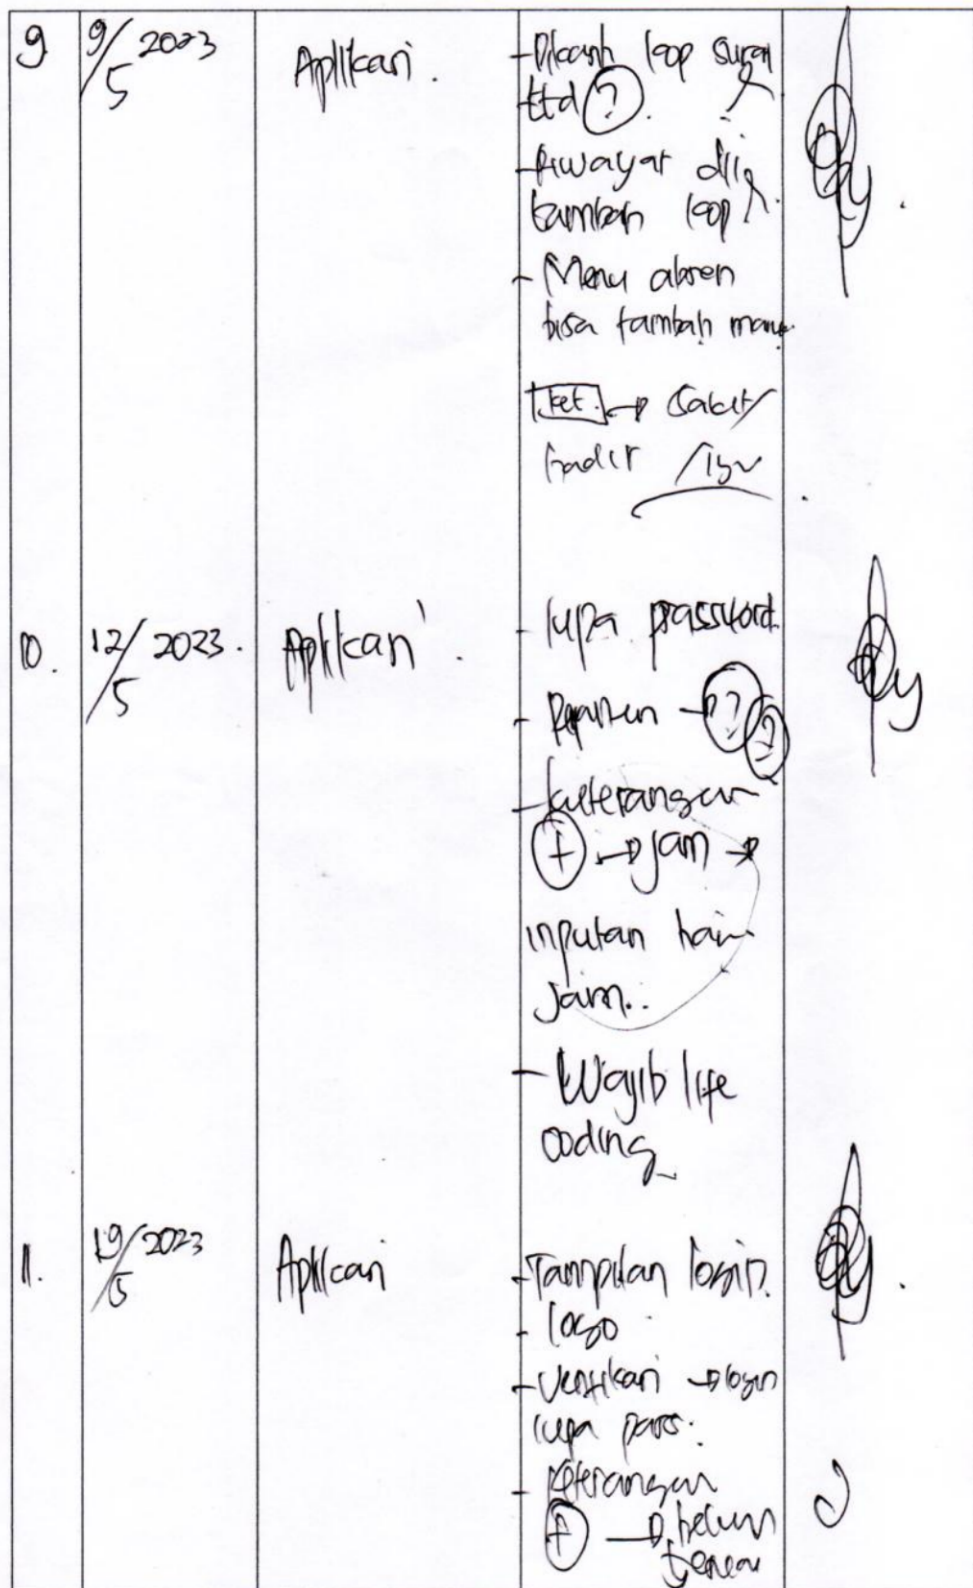 9 9/5 2023 Aplikasi. - Dikasih kop surat
ttd ?
- Riwayat diri
tambah kop
- Menu absen
bisa tambah
ket. → Sakit/
hadir /
10. 12/5 2023. Aplikasi - lupa password.
- → ? ?
- keterangan
+ → jam →
inputan hari
jam..
- Wajib life
coding
11. 19/5 2023 Aplikasi - Tampilan login.
- logo
- Verifikasi → login
lupa pass.
- Keterangan
+ → belum